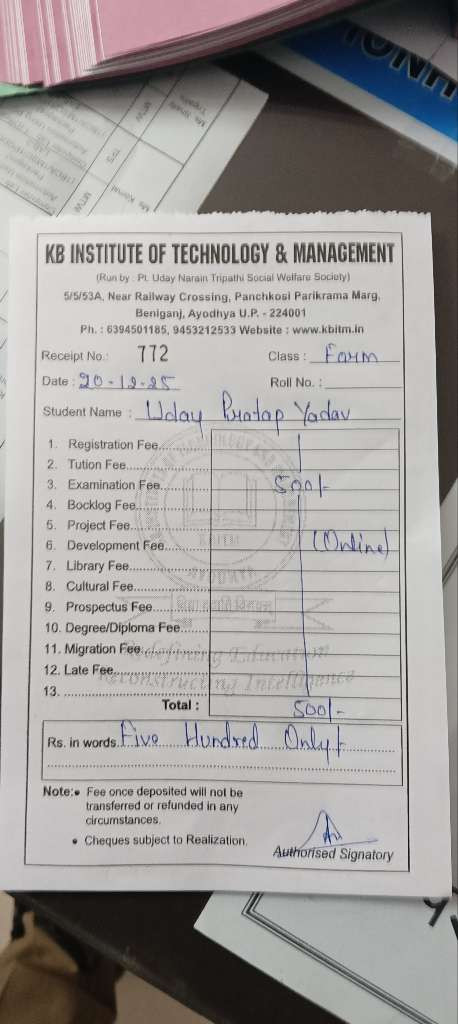 KB INSTITUTE OF TECHNOLOGY & MANAGEMENT
(Run by : Pt. Uday Narain Tripathi Social Welfare Society)
5/5/53A, Near Railway Crossing, Panchkosi Parikrama Marg,
Beniganj, Ayodhya U.P. - 224001
Ph. : 6394501185, 9453212533 Website : www.kbitm.in
Receipt No.: 772 Class : Farm
Date : 20-12-25 Roll No. :
Student Name : Uday Pratap Yadav
1. Registration Fee
2. Tution Fee
3. Examination Fee 500/-
4. Bocklog Fee
5. Project Fee
6. Development Fee (Online)
7. Library Fee
8. Cultural Fee
9. Prospectus Fee
10. Degree/Diploma Fee
11. Migration Fee
12. Late Fee
13.
Redefining Education
Reconstructing Intelligence
Total : 500/-
Rs. in words. Five Hundred Only/-
Note: • Fee once deposited will not be
transferred or refunded in any
circumstances.
• Cheques subject to Realization.
Authorised Signatory